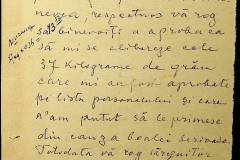 nevea, respectuos vă rog
să binevoiți a aproba ca
să mi se elibereze cele
37 Kilograme de grân
care mi au fost aprobate
pe lista personalului și care
n'am putut să le primesc
din cauza boalei
Totodată vă rog